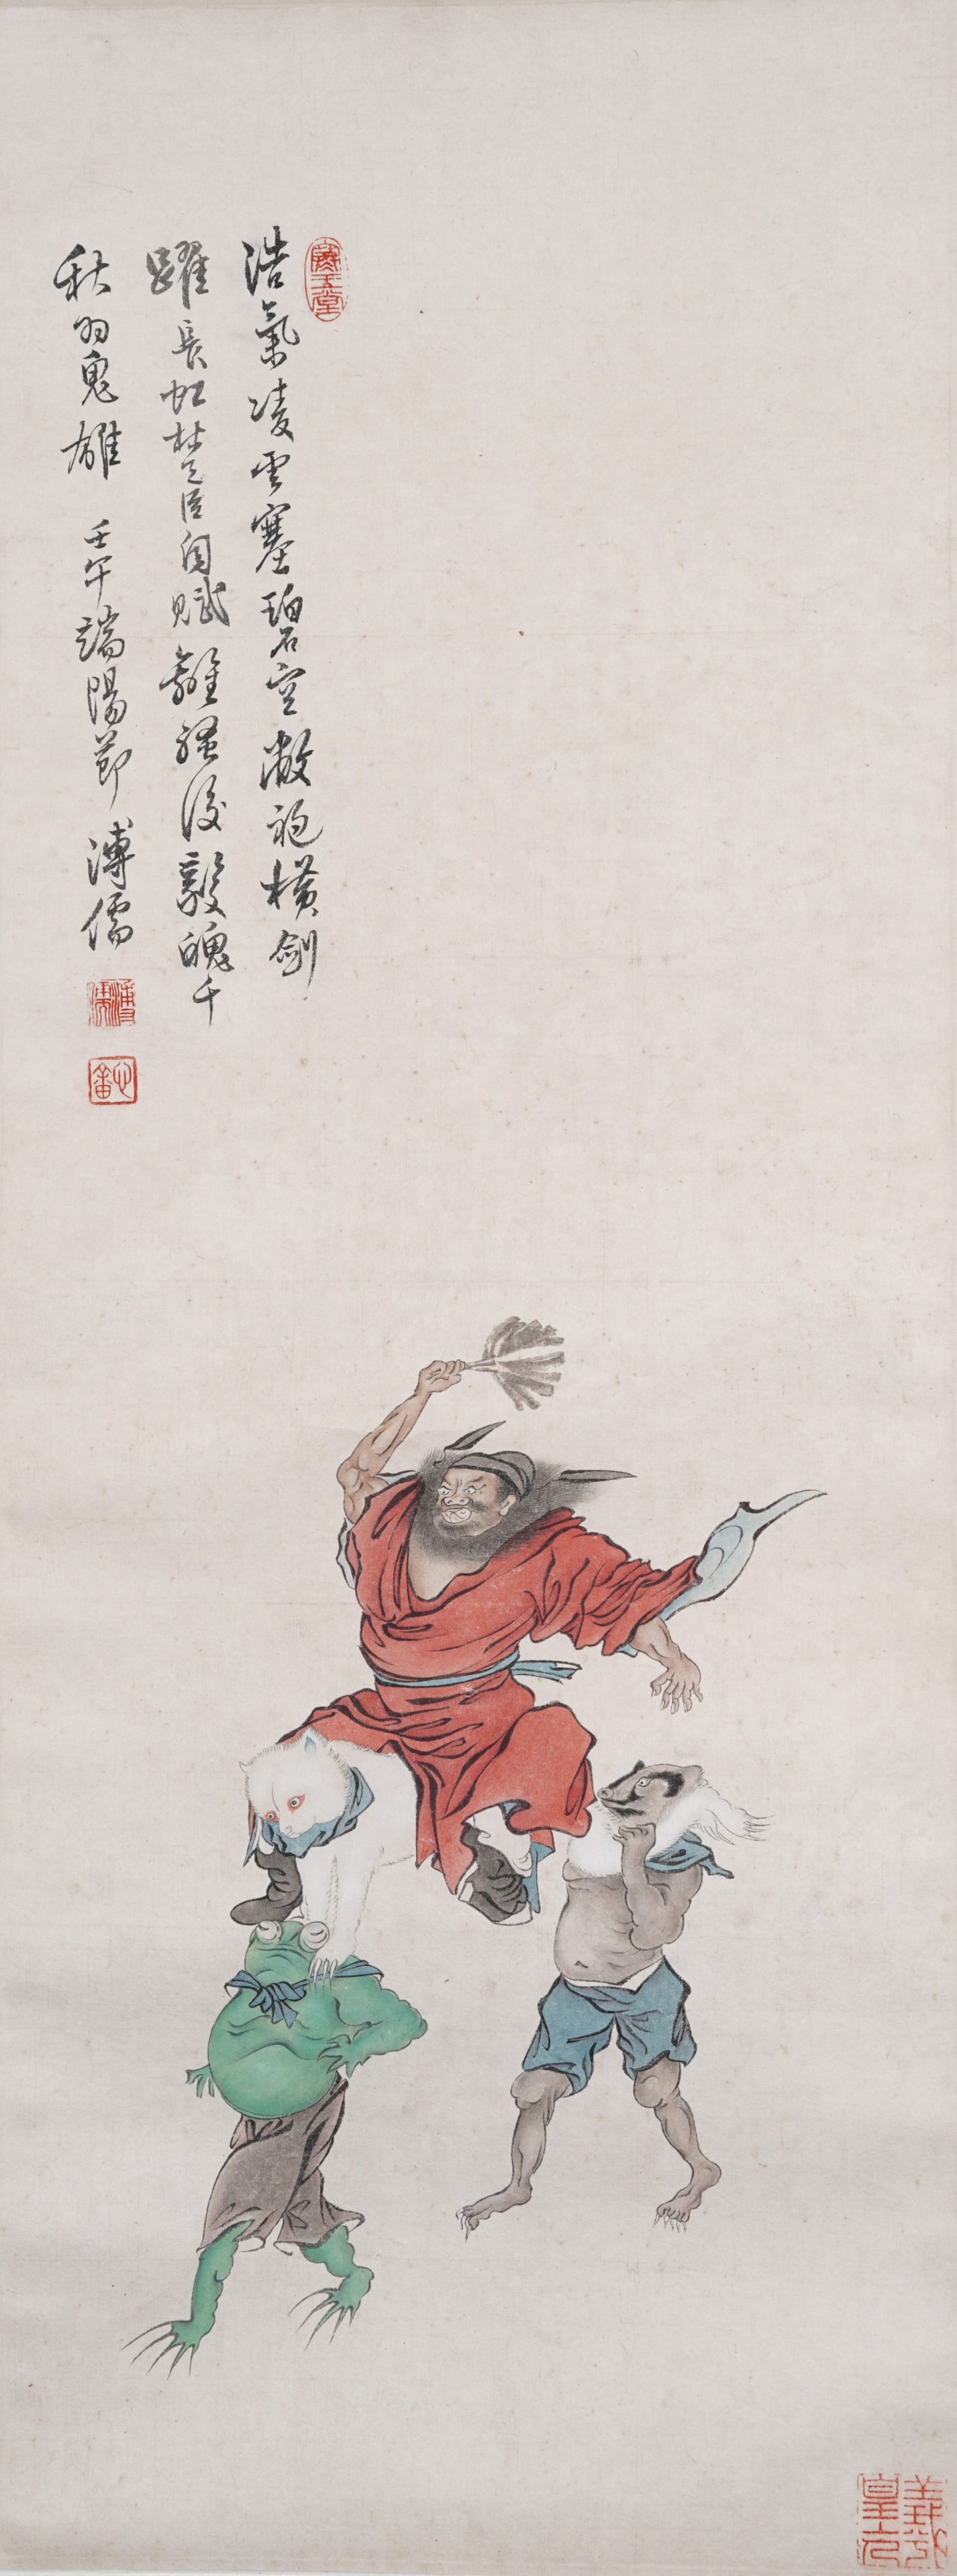 寒玉堂
浩氣凌雲塞碧空敝袍橫劍
躍長虹楚臣自賦離騷後毅魄千
秋羽鬼雄 壬午端陽節 溥儒
溥儒
心畬
羲皇上人